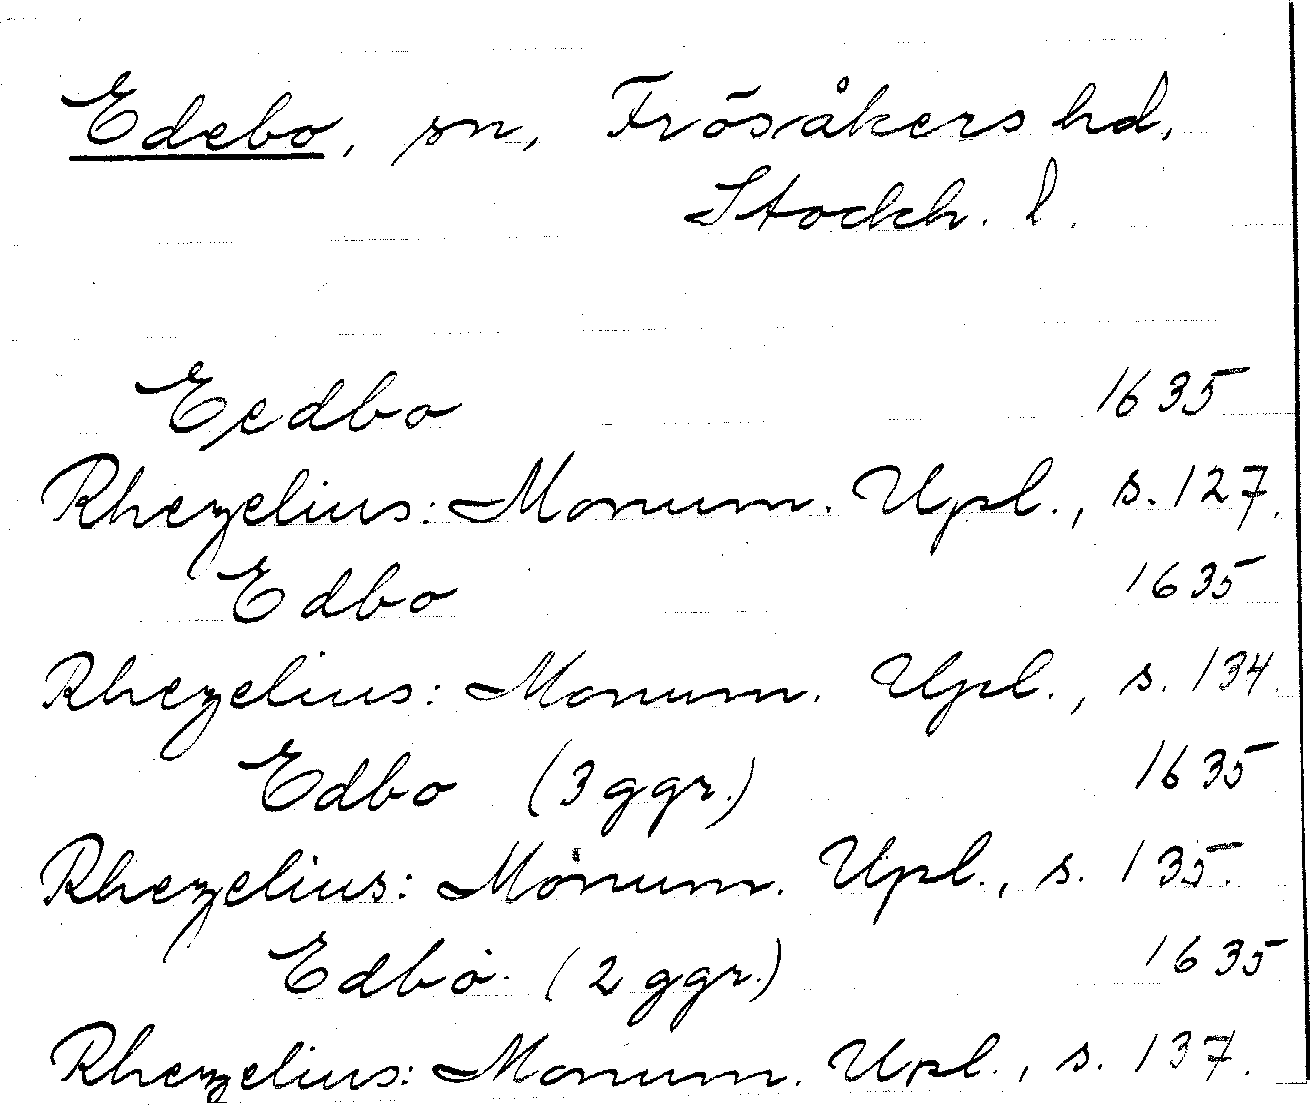 Edebo, sn, Frösåkers hd,
Stockh. l.
Eedbo 1635
Rhezelius: Monum. Upl., s. 127.
Edbo 1635
Rhezelius: Monum. Upl., s. 134.
Edbo (3 ggr.) 1635
Rhezelius: Monum. Upl., s. 135.
Edbo (2 ggr.) 1635
Rhezelius: Monum. Upl., s. 137.